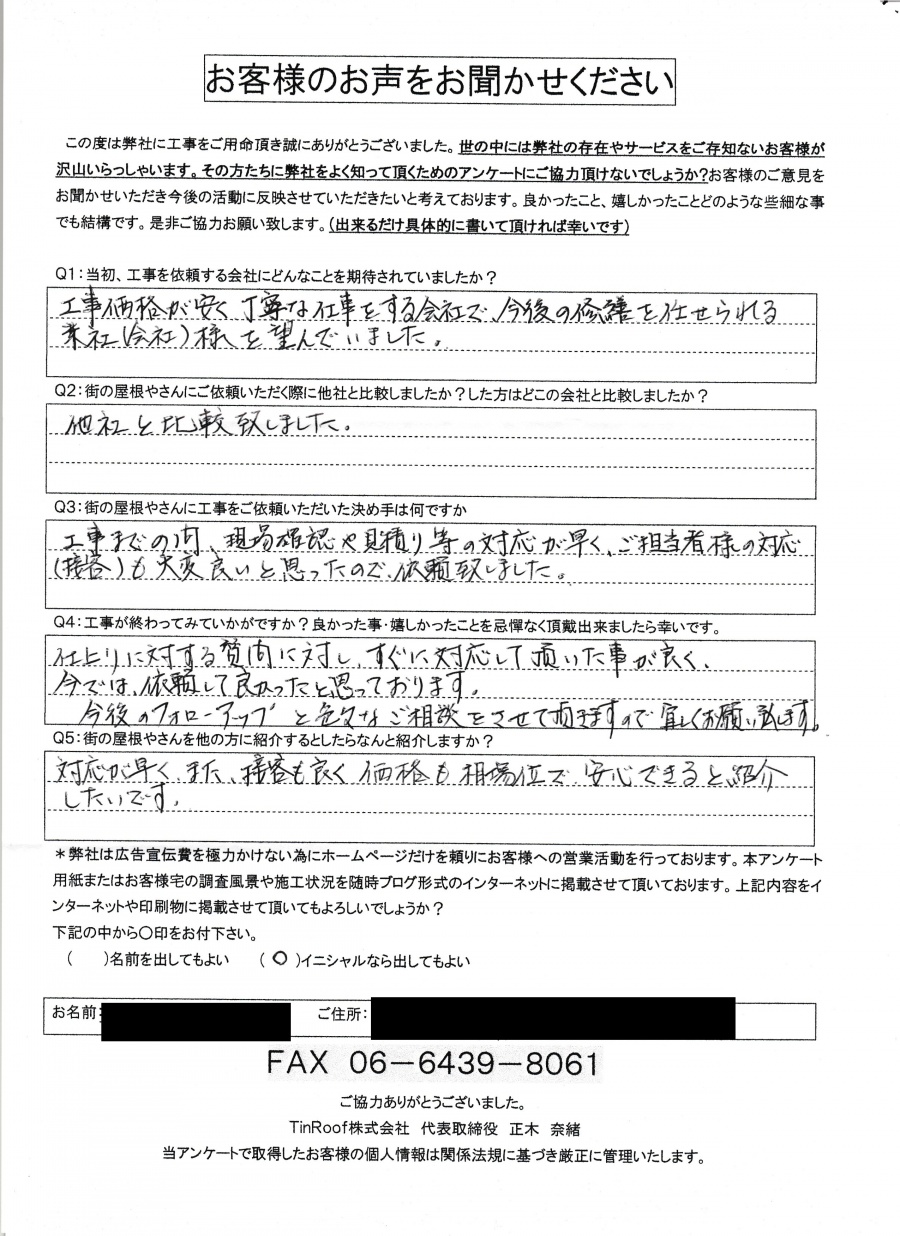 お客様のお声をお聞かせください
この度は弊社に工事をご用命頂き誠にありがとうございました。世の中には弊社の存在やサービスをご存知ないお客様が
沢山いらっしゃいます。その方たちに弊社をよく知って頂くためのアンケートにご協力頂けないでしょうか?お客様のご意見を
お聞かせいただき今後の活動に反映させていただきたいと考えております。良かったこと、嬉しかったことどのような些細な事
でも結構です。是非ご協力お願い致します。(出来るだけ具体的に書いて頂ければ幸いです)
Q1:当初、工事を依頼する会社にどんなことを期待されていましたか?
工事価格が安く丁寧な仕事をする会社で、今後の修繕を任せられる
業社(会社)様を望んでいました。
Q2:街の屋根やさんにご依頼いただく際に他社と比較しましたか?した方はどこの会社と比較しましたか?
他社と比較致しました。
Q3:街の屋根やさんに工事をご依頼いただいた決め手は何ですか
工事までの間、現場確認や見積り等の対応が早く、ご担当者様の対応
(接客)も大変良いと思ったので、依頼致しました。
Q4:工事が終わってみていかがですか?良かった事・嬉しかったことを忌憚なく頂戴出来ましたら幸いです。
仕上りに対する質問に対し、すぐに対応して頂いた事が良く、
今では、依頼して良かったと思っております。
今後のフォローアップと色々なご相談をさせて頂きますので宜しくお願い致します。
Q5:街の屋根やさんを他の方に紹介するとしたらなんと紹介しますか?
対応が早く、また、接客も良く価格も相場位で、安心できると紹介
したいです。
*弊社は広告宣伝費を極力かけない為にホームページだけを頼りにお客様への営業活動を行っております。本アンケート
用紙またはお客様宅の調査風景や施工状況を随時ブログ形式のインターネットに掲載させて頂いております。上記内容をイ
ンターネットや印刷物に掲載させて頂いてもよろしいでしょうか?
下記の中から〇印をお付下さい。
( )名前を出してもよい (○)イニシャルなら出してもよい
お名前: ご住所:
FAX 06-6439-8061
ご協力ありがとうございました。
TinRoof株式会社 代表取締役 正木 奈緒
当アンケートで取得したお客様の個人情報は関係法規に基づき厳正に管理いたします。